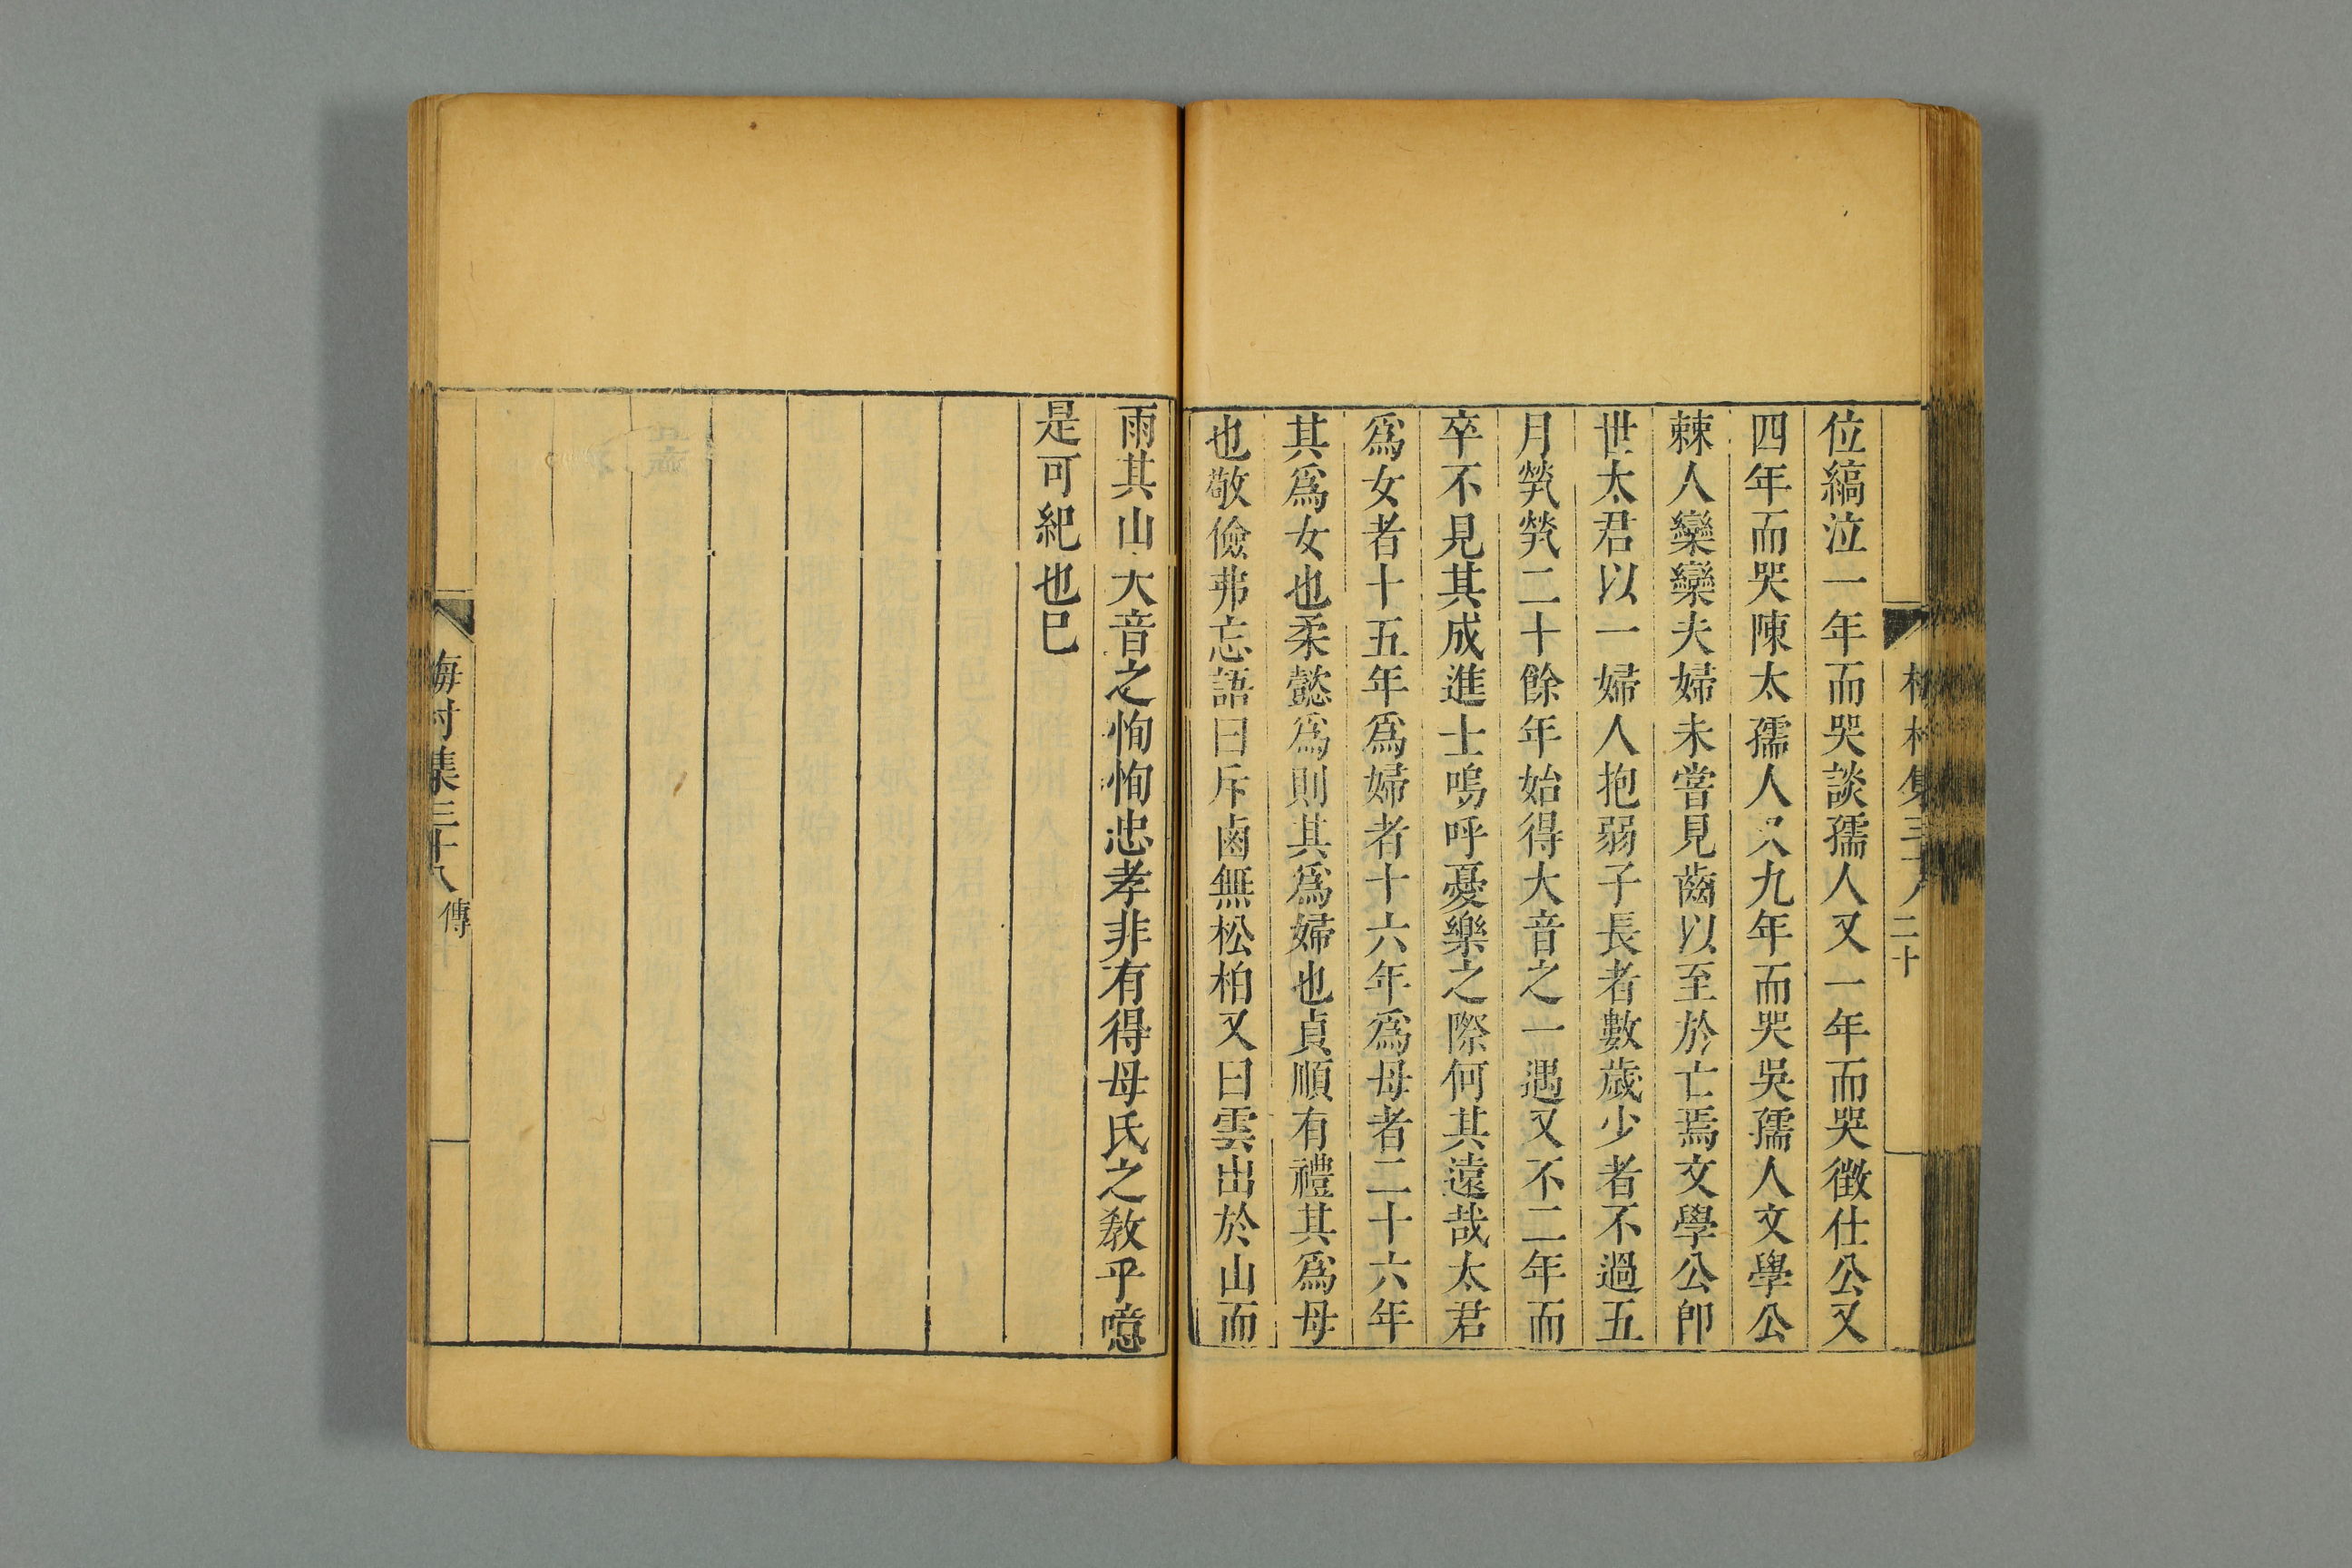 梅村集三十八 二十
位縞泣一年而哭談孺人又一年而哭徵仕公又
四年而哭陳太孺人又九年而哭吳孺人文學公
棘人欒欒夫婦未嘗見齒以至於亡焉文學公卽
世太君以一婦人抱弱子長者數歲少者不過五
月煢煢二十餘年始得大音之一遇又不二年而
卒不見其成進士嗚呼憂樂之際何其遠哉太君
爲女者十五年爲婦者十六年爲母者二十六年
其爲女也柔懿爲則其爲婦也貞順有禮其爲母
也敬儉弗忘語曰斥鹵無松柏又曰雲出於山而
雨其山大音之恂恂忠孝非有得母氏之敎乎噫
是可紀也巳
梅村集三十八 傳